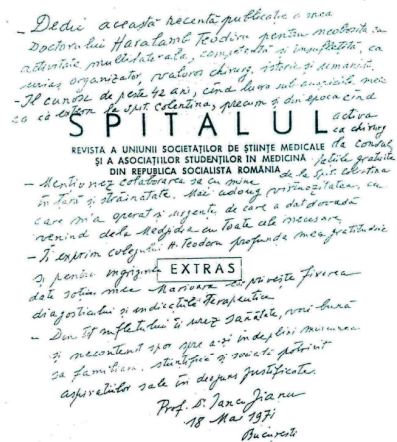 – Dedic această recentă publicație a mea
Doctorului Haralamb Teodoru pentru neobosita sa
activitate multilaterală, competentă și însuflețită, ca
organizator, valoros chirurg, istoric și umanist,
– Îl cunosc de peste 42 ani, cînd lucra sub auspiciile mele
ca extern la Spit. Colentina, precum și din epoca cînd
activa
SPITALUL
ca chirurg
REVISTA A UNIUNII SOCIETAȚILOR DE ȘTIINȚE MEDICALE
ȘI A ASOCIAȚIILOR STUDENȚILOR ÎN MEDICINA
DIN REPUBLICA SOCIALISTA ROMÂNIA
la consul
tațiile gratuite
de la Spit. Colentina
– Menționez colaborarea sa cu mine
în țară și străinătate. Mai adaug cu
care m'a operat și urgența, de care a dat dovadă
venind dela Medjidia cu toate ale necesare,
– Îi exprim colegului H. Teodoru profunda mea gratitudine
și pentru îngrijirea
EXTRAS
date soției mea Marioara cu privește fixarea
diagosticului și indicațiile terapeutice,
– Din tot sufletului îi urez sănătate, voie bună
și necontenit spor spre a-și îndeplini
sa familiară, științifică și socială potrivit
aspirațiilor sale în deajuns justificate.
Prof. D. Iancu Jianu
18 Mai 1971
București